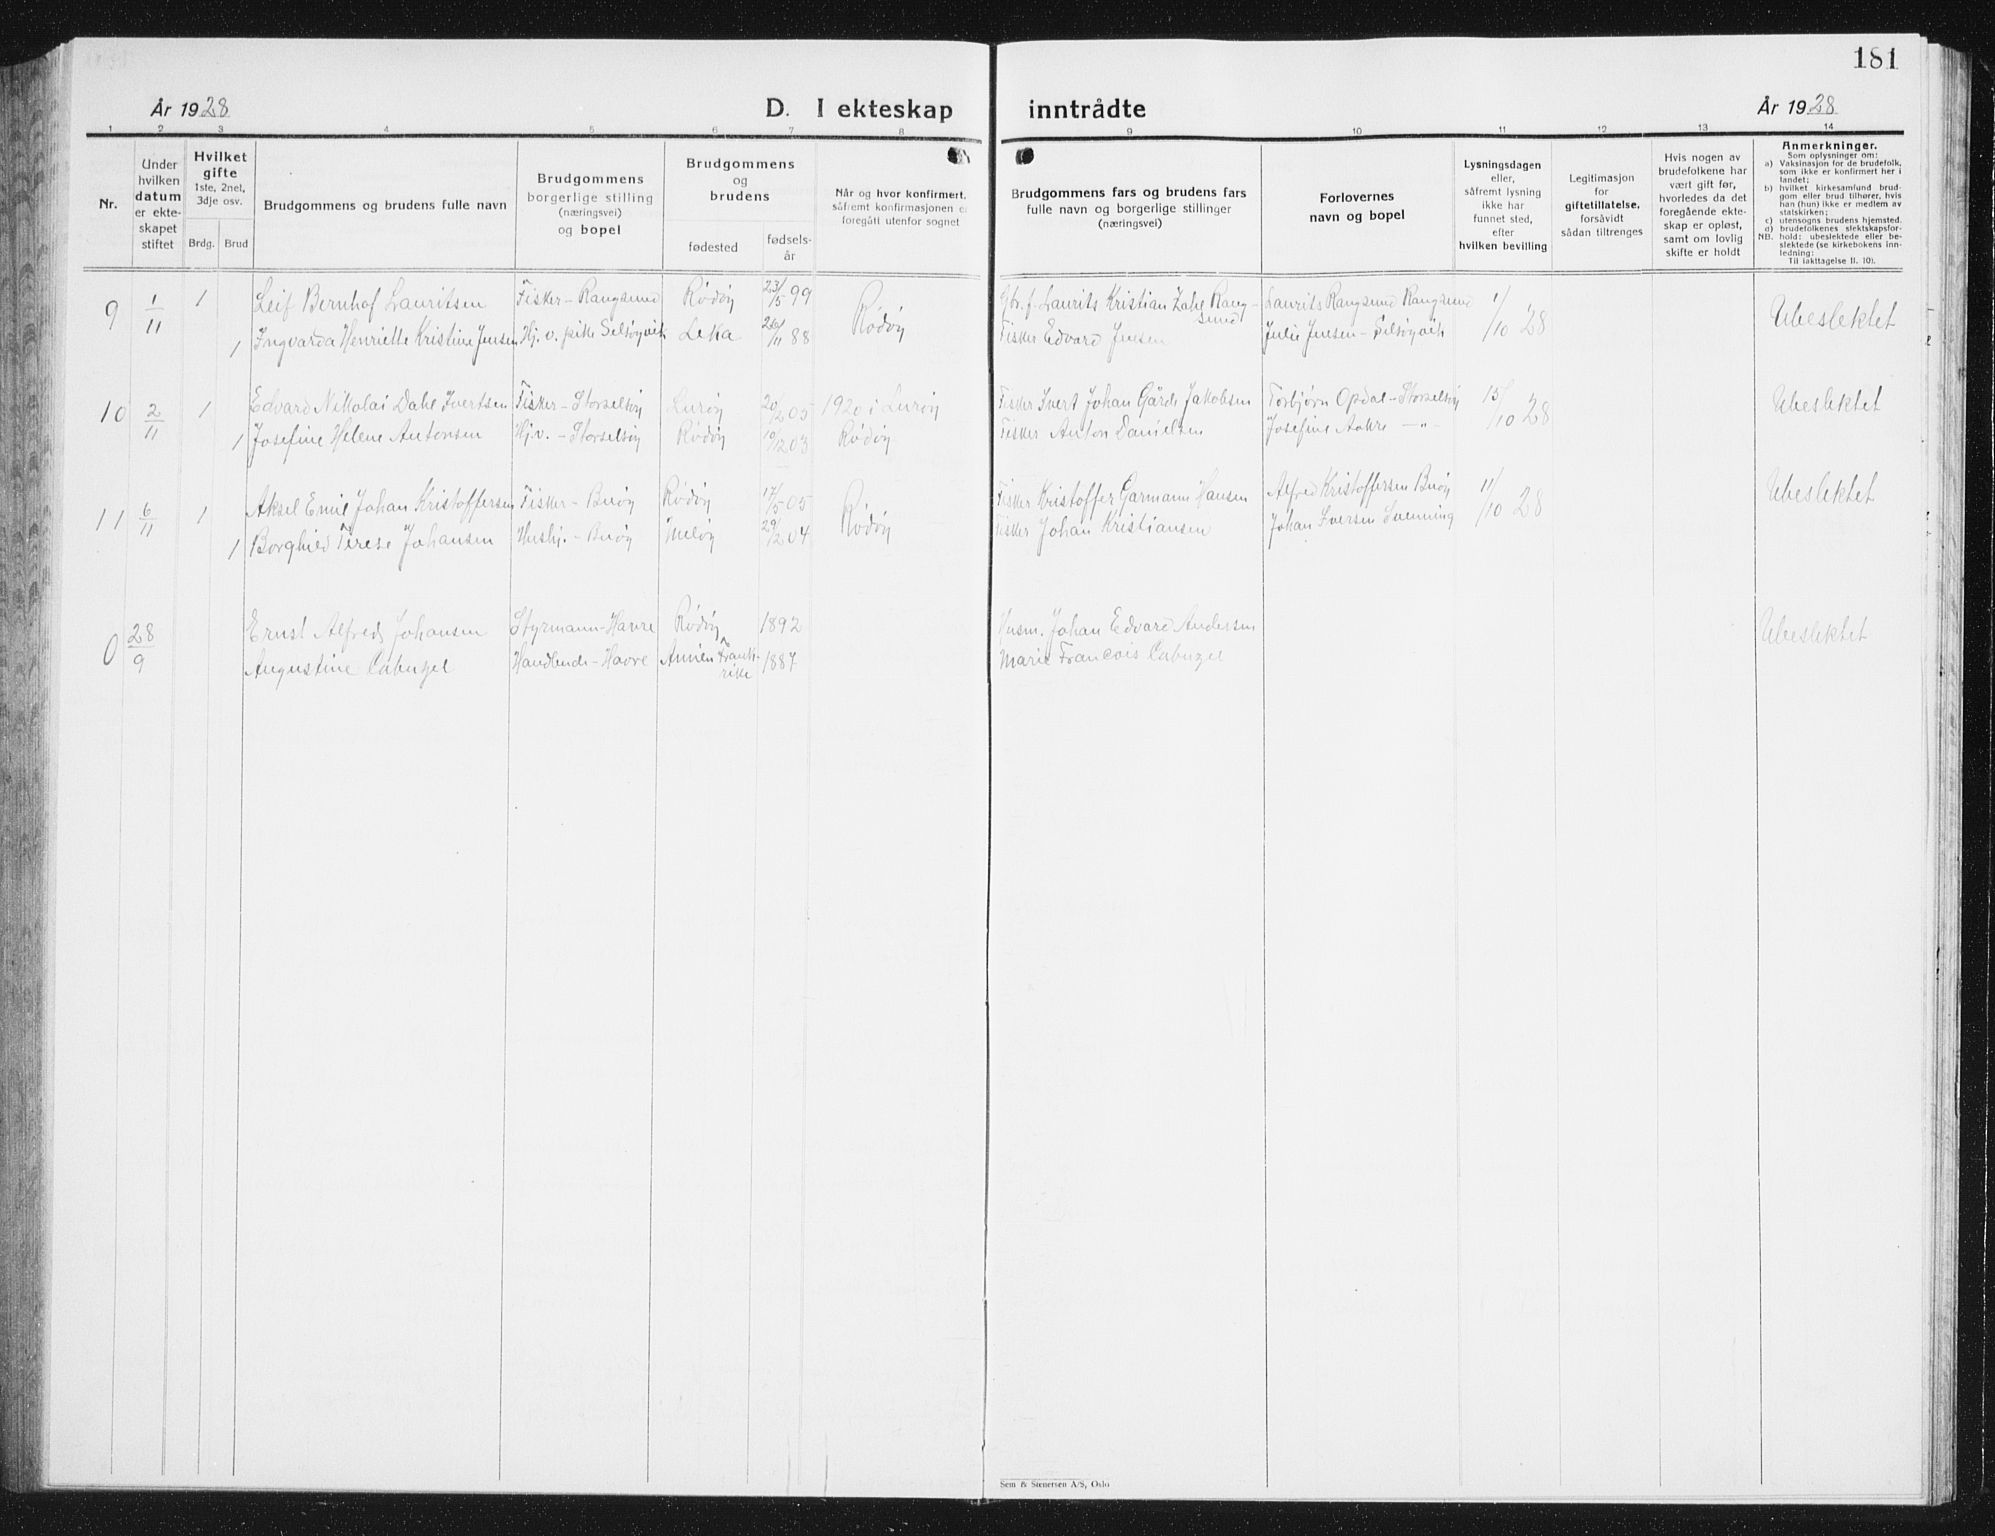 181
År 1928
D. I ekteskap inntrådte
År 1928
1 2 3 4 5 6 7 8 9 10 11 12 13 14
Nr.
Under hvilken datum er ekteskapet stiftet
Hvilket gifte
1ste, 2net, 3dje osv.
Brdg. Brud
Brudgommens og brudens fulle navn
Brudgommens borgerlige stilling (næringsvei) og bopel
Brudgommens og brudens
fødested
fødselsår
Når og hvor konfirmert,
såfremt konfirmasjonen e
foregått utenfor sognet
Brudgommens fars og brudens fars
fulle navn og borgerlige stillinger
(næringsvei)
Forlovernes
navn og bopel
Lysningsdagen
eller,
såfremt lysning
ikke har
funnet sted,
efter
hvilken bevilling
Legitimasjon
for
giftetillatelse,
forsåvidt
sådan tiltrenges
Hvis nogen av
brudefolkene har
vært gift før,
hvorledes da det
foregående ekte-
skap er opløst,
samt om lovlig
skifte er holdt
Anmerkninger.
Som oplysninger om:
a) Vaksinasjon for de brudefolk,
som ikke er konfirmert her i
landet;
b) hvilket kirkesamfund brud-
gom eller brud tilhører, hvis
han (hun) ikke er medlem av
statskirken;
c) utensogns brudens hjemsted.
d) brudefolkenes slektskapsfor-
NB. hold: ubeslektede eller be-
slektede (se kirkebokens inn-
ledning:
Til iakttagelse 11. 10).
9 1/11 1 Leif Bernhof Lauritsen Fisker - Rangsund Rödöy 23/5 99 Rödöy Gbr. f. Laurits Kristian Zahl Rangsund Laurits Rangsund Rangsund 1/10 28 Ubeslektet
1 Ingvarda Henriette Kristine Jensen Hj. v. pike Selsöyvik Leka 26/11 88 Fisker Edvard Jensen Julie Jensen - Selsöyvik
10 2/11 1 Edvard Nikolai Dahl Ivertsen Fisker - Storselsöy Luröy 20/2 05 1920 i Luröy Fisker Ivert Johan Gårde Jakobsen Torbjörn Opdal - Storselsöy 15/10 28 Ubeslektet
1 Josefine Helene Antonsen Hj.v. - Storselsöy Rödöy 10/12 03 Rödöy Fisker Anton Danielsen Josefine Aakre - " -
11 6/11 1 Aksel Emil Johan Kristoffersen Fisker - Buöy Rödöy 17/5 05 Rödöy Fisker Kristoffer Garmann Hansen Alfred Kristoffersen Buöy 11/10 28 Ubeslektet
1 Borghild Terese Johansen Hushj. - Buöy Melöy 29/2 04 Fisker Johan Kristiansen Johan Iversen Svenning
0 28/9 Ernst Alfred Johansen Styrmann - Havre Rödöy 1892 Husm. Johan Edvard Andersen Ubeslektet
Augustine Cabuzel Handlende - Havre Amien Frankrike 1887 Marie Francois Cabuzel
Sem & Stenersen A/S, Oslo